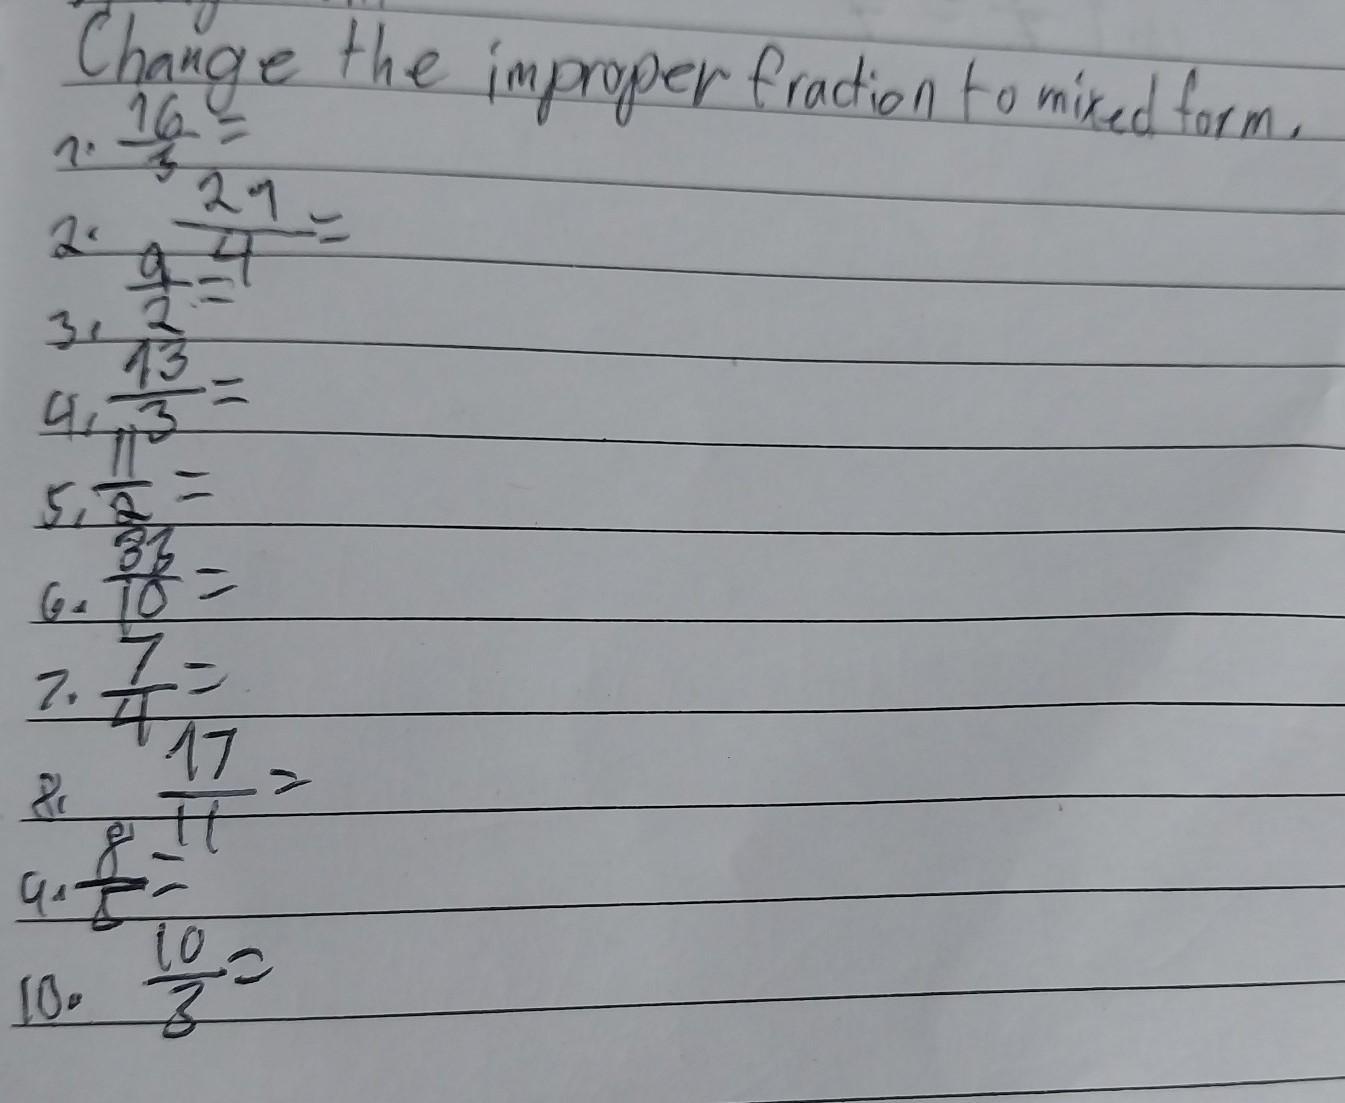 Change the improper fraction to mixed form.
1. 16/3 =
2. 21/4 =
3. 9/2 =
4. 13/3 =
5. 11/2 =
6. 33/10 =
7. 7/4 =
8. 17/11 =
9. 8/5 =
10. 10/3 =